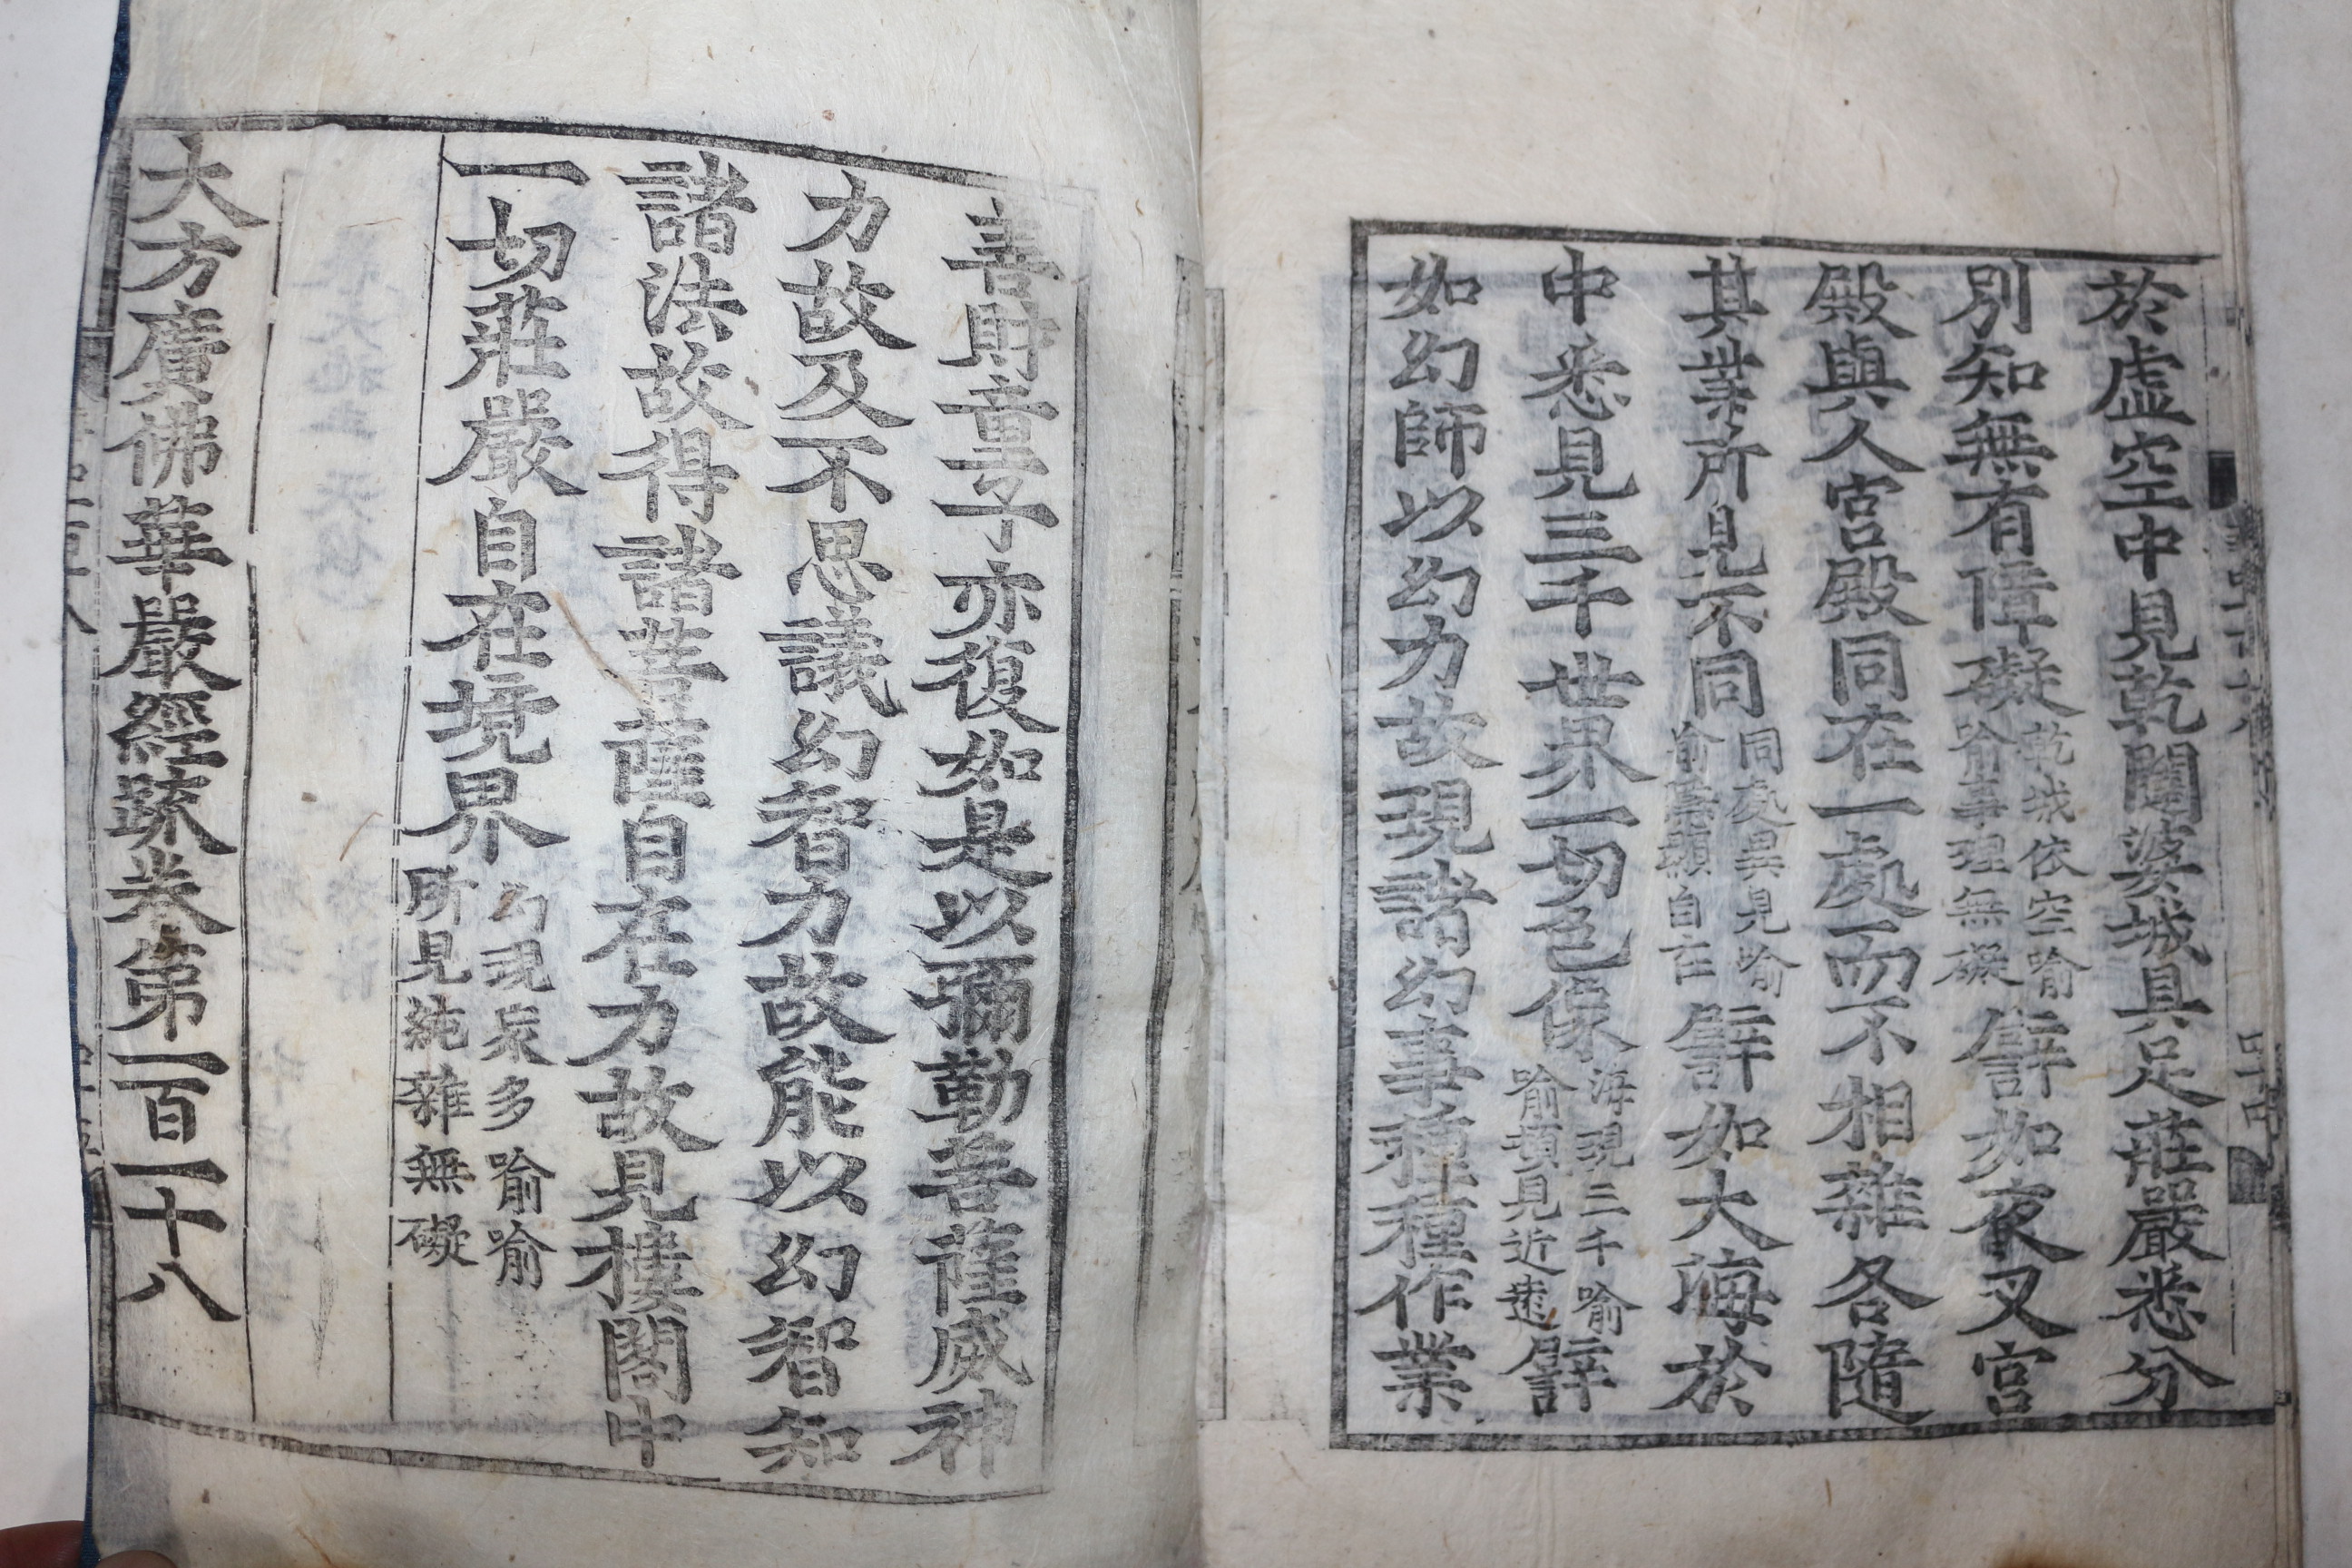 於虛空中見乾闥婆城具足莊嚴悉分
別知無有障礙乾城依空喻喻事理無礙譬如夜叉宮
殿與人宮殿同在一處而不相雜各隨
其業所見不同同處異見喻喻隱顯自在譬如大海於
中悉見三千世界一切色像海現三千喻喻頓見近遠譬
如幻師以幻力故現諸幻事種種作業
善財童子亦復如是以彌勒菩薩威神
力故及不思議幻智力故能以幻智知
諸法故得諸菩薩自在力故見樓閣中
一切莊嚴自在境界幻現衆多喻喻所見純雜無礙
大方廣佛華嚴經疏卷第一百一十八